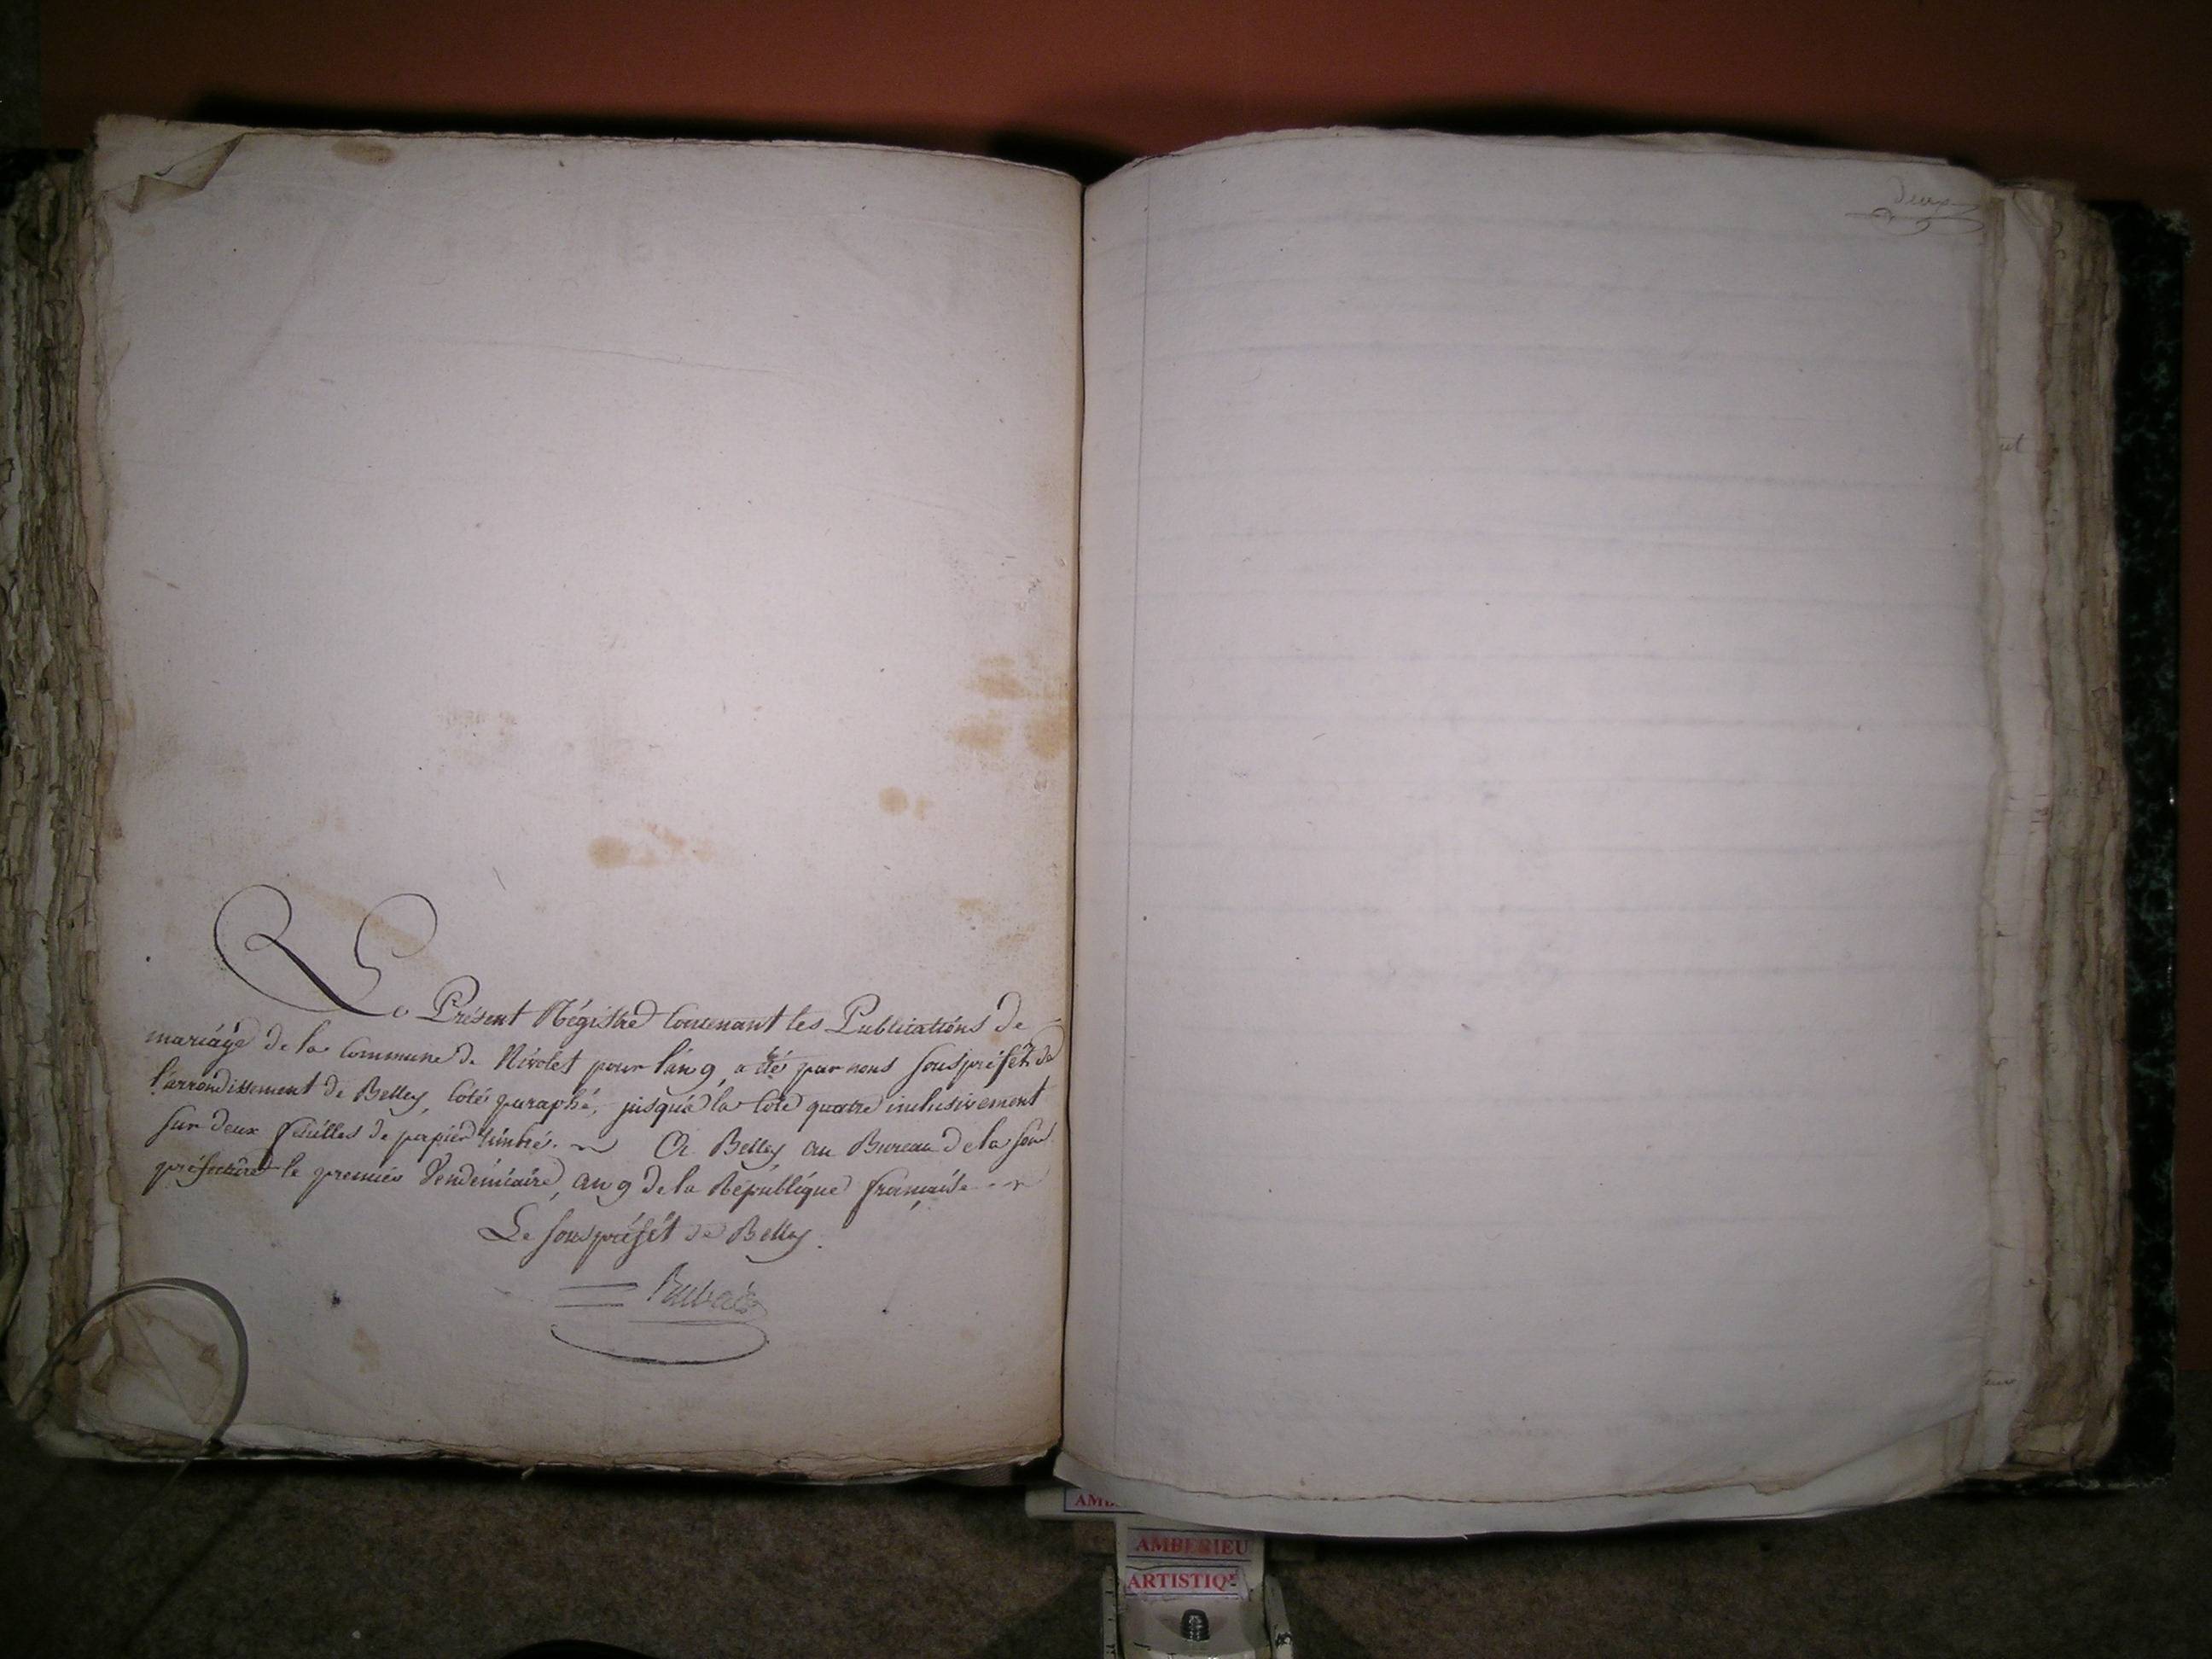 Le Présent Régistre Contenant les Publications de
mariáge de la Commune de Nivolet pour l'an 9, a été par nous Souspréfét de
l'arrondissement de Belley, Coté paraphé, jusqu'à la Cote quatre inclusivement
sur deux feuilles de papier timbré. A Belley au Bureau de la sous
préfecture le premier Vendémiaire, an 9 de la République française
Le Souspréfét de Belley.
deux
AMBERIEU
ARTISTIQ